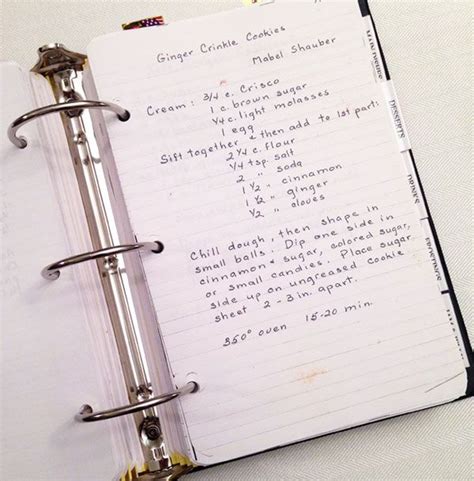 Ginger Crinkle Cookies
Mabel Shauber
Cream: 3/4 c. Crisco
1 c. brown sugar
1/4 c. light molasses
1 egg
Sift together & then add to 1st part:
2 1/4 c. flour
1/4 tsp. salt
2 " soda
1 1/2 " cinnamon
1 1/2 " ginger
1/2 " cloves
Chill dough, then shape in
small balls. Dip one side in
cinnamon & sugar, colored sugar,
or small candies. Place sugar
side up on ungreased cookie
sheet 2 - 3 in. apart.
350° oven 15-20 min.
DESSERTS